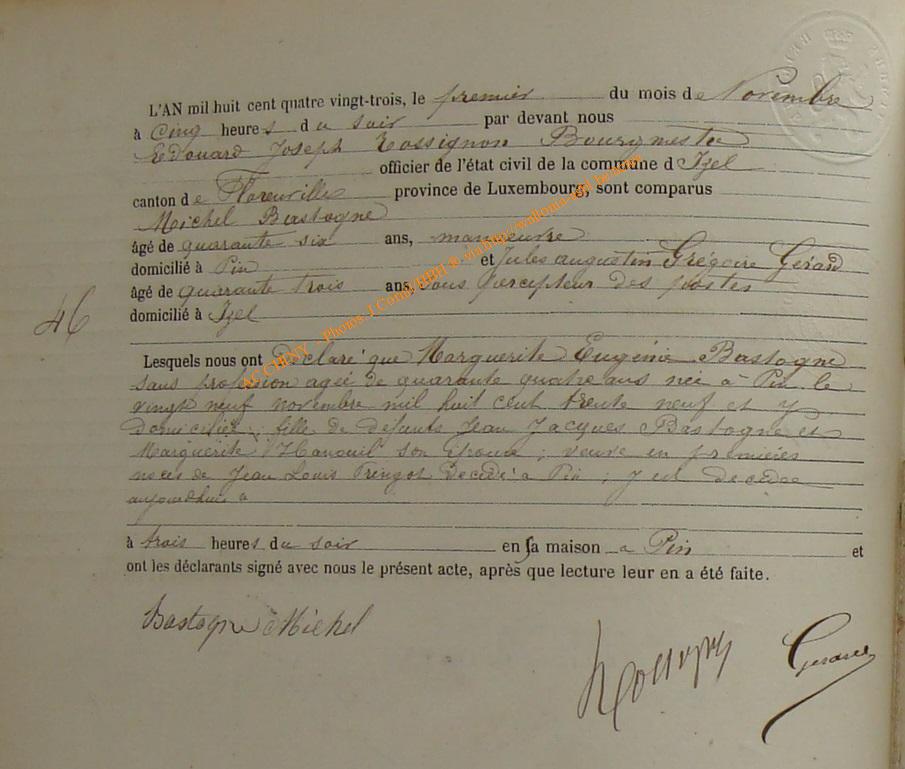 L'AN mil huit cent quatre vingt-trois, le premier du mois de Novembre
à Cinq heures du soir par devant nous
Edouard Joseph Rossignon Bourgmestre
officier de l'état civil de la commune d'Izel
canton de Florenville province de Luxembourg, sont comparus
Michel Bastogne
âgé de quarante six ans, manœuvre
domicilié à Pin et Jules augustin Grégoire Gérard
âgé de quarante trois ans, sous percepteur des postes
domicilié à Izel
46
Lesquels nous ont déclaré que Marguerite Eugénie Bastogne
sans profession agée de quarante quatre ans née à Pin le
vingt neuf novembre mil huit cent trente neuf et y
domiciliée, fille de défunts Jean Jacques Bastogne et
Marguerite son épouse ; veuve en premières
noces de Jean Louis décédé à Pin ; y est décédée
aujourd'hui à
à trois heures du soir en sa maison à Pin et
ont les déclarants signé avec nous le présent acte, après que lecture leur en a été faite.
Bastogne Michel
Rossignon
Gerard